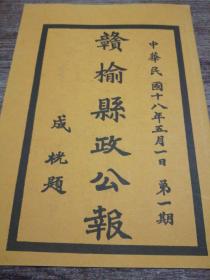 中華民國十八年五月一日 第一期
贛榆縣政公報
成桄題